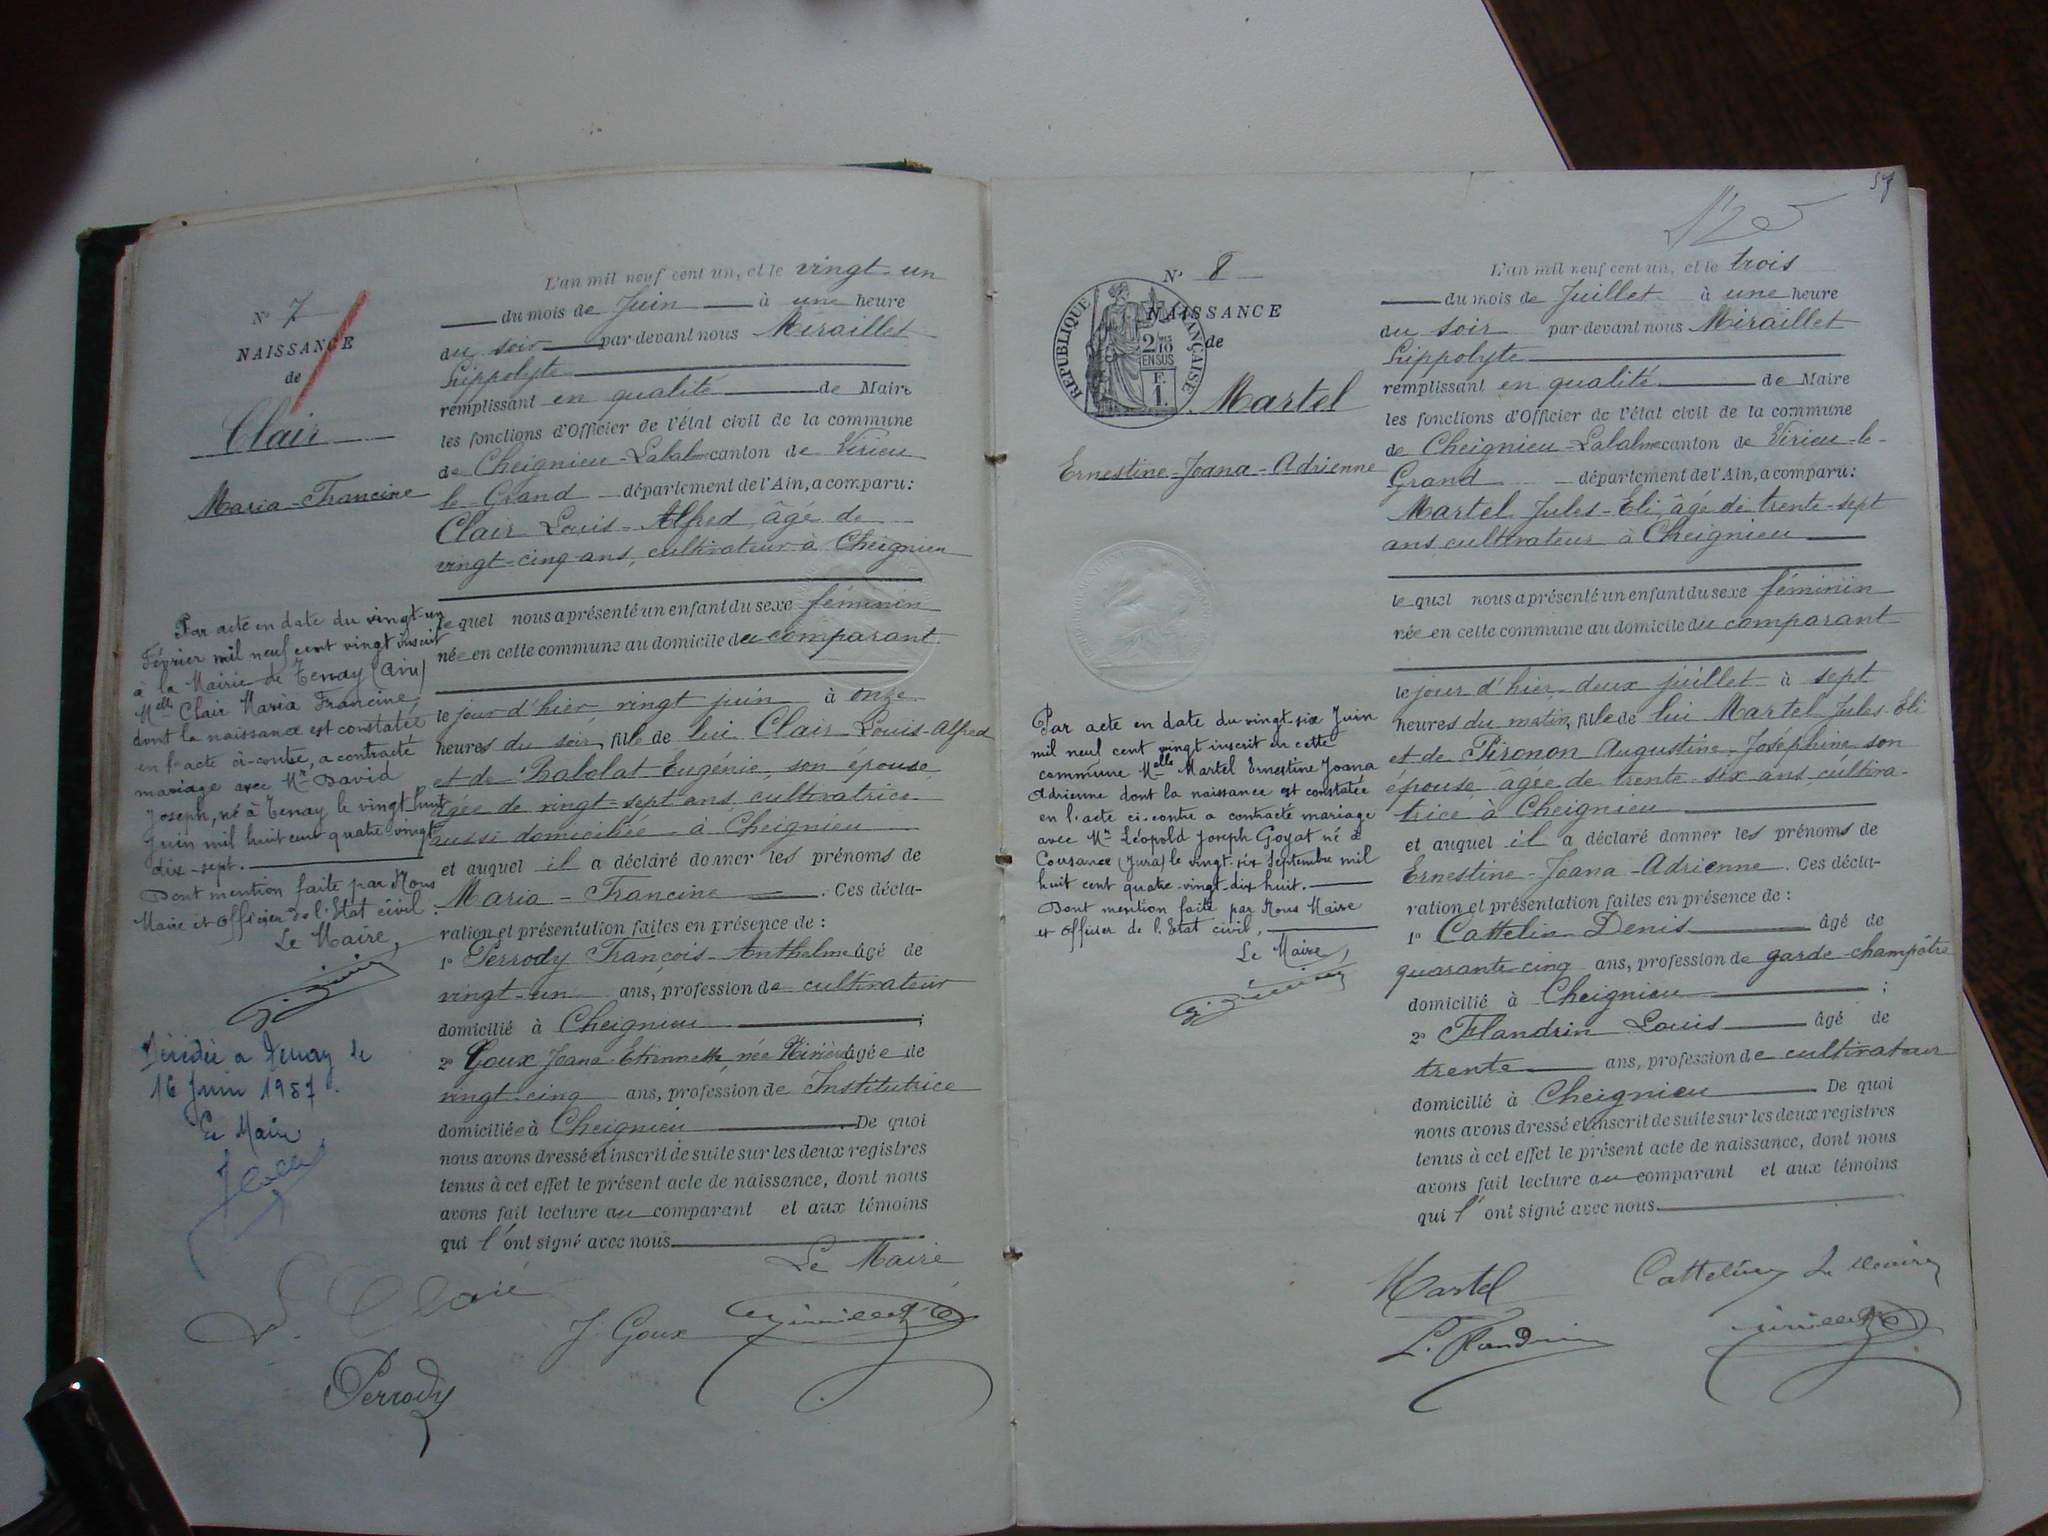 N° 7
NAISSANCE
de
Clair
Maria-Francine
Par acte en date du vingt-un
Février mil neuf cent vingt inscrit
à la Mairie de Tenay (Ain)
Melle Clair Maria Francine
dont la naissance est constatée
en l'acte ci-contre, a contracté
mariage avec Mr David
Joseph, né à Tenay le vingt huit
Juin mil huit cent quatre vingt
dix-sept.
Dont mention faite par Nous
Maire et Officier de l'Etat civil.
Le Maire,
Décédée a Tenay le
16 Juin 1957.
Le Maire
L'an mil neuf cent un, et le vingt-un
du mois de Juin à une heure
du soir par devant nous Miraillet
Hippolyte
remplissant en qualité de Maire
les fonctions d'Officier de l'état civil de la commune
de Cheignieu-Labalme canton de Virieu
le-Grand département de l'Ain, a comparu:
Clair Louis-Alfred, âgé de
vingt-cinq ans, cultivateur à Cheignieu
le quel nous a présenté un enfant du sexe féminin
née en cette commune au domicile du comparant
le jour d'hier vingt juin à onze
heures du soir, fille de lui Clair Louis-Alfred
et de Babolat Eugénie, son épouse
âgée de vingt-sept ans, cultivatrice
aussi domiciliée à Cheignieu
et auquel il a déclaré donner les prénoms de
Maria-Francine. Ces décla-
ration et présentation faites en présence de:
1° Perrody François-Anthelme âgé de
vingt-un ans, profession de cultivateur
domicilié à Cheignieu;
2° Goux Joana-Etiennette, née âgée de
vingt-cinq ans, profession de Institutrice
domiciliée à Cheignieu De quoi
nous avons dressé et inscrit de suite sur les deux registres
tenus à cet effet le présent acte de naissance, dont nous
avons fait lecture au comparant et aux témoins
qui l'ont signé avec nous.
Le Maire
L. Clair
J. Goux
Perrody
57
N° 8
NAISSANCE
de
REPUBLIQUE FRANÇAISE
2/10
EN SUS
F.
1.
Martel
Ernestine-Joana-Adrienne
Par acte en date du vingt-six Juin
mil neuf cent vingt inscrit en cette
commune Melle Martel Ernestine Joana
Adrienne dont la naissance est constatée
en l'acte ci-contre a contracté mariage
avec Mr Léopold Joseph Goyat né à
Cousance (Jura) le vingt-six Septembre mil
huit cent quatre-vingt-dix huit.
Dont mention faite par Nous Maire
et Officier de l'Etat civil,
Le Maire,
L'an mil neuf cent un, et le trois
du mois de Juillet à une heure
du soir par devant nous Miraillet
Hippolyte
remplissant en qualité de Maire
les fonctions d'Officier de l'état civil de la commune
de Cheignieu-Labalme canton de Virieu-le-
Grand département de l'Ain, a comparu:
Martel Jules-Eli, âgé de trente-sept
ans cultivateur à Cheignieu
le quel nous a présenté un enfant du sexe féminin
née en cette commune au domicile du comparant
le jour d'hier, deux juillet à sept
heures du matin, fille de lui Martel Jules-Eli
et de Pironon Augustine-Joséphine son
épouse âgée de trente-six ans, cultiva-
trice à Cheignieu
et auquel il a déclaré donner les prénoms de
Ernestine-Joana-Adrienne. Ces décla-
ration et présentation faites en présence de:
1° Cattelin Denis âgé de
quarante-cinq ans, profession de garde-champêtre
domicilié à Cheignieu;
2° Flandrin Louis âgé de
trente ans, profession de cultivateur
domicilié à Cheignieu De quoi
nous avons dressé et inscrit de suite sur les deux registres
tenus à cet effet le présent acte de naissance, dont nous
avons fait lecture au comparant et aux témoins
qui l'ont signé avec nous.
Martel Cattelin Le Maire
L. Flandrin